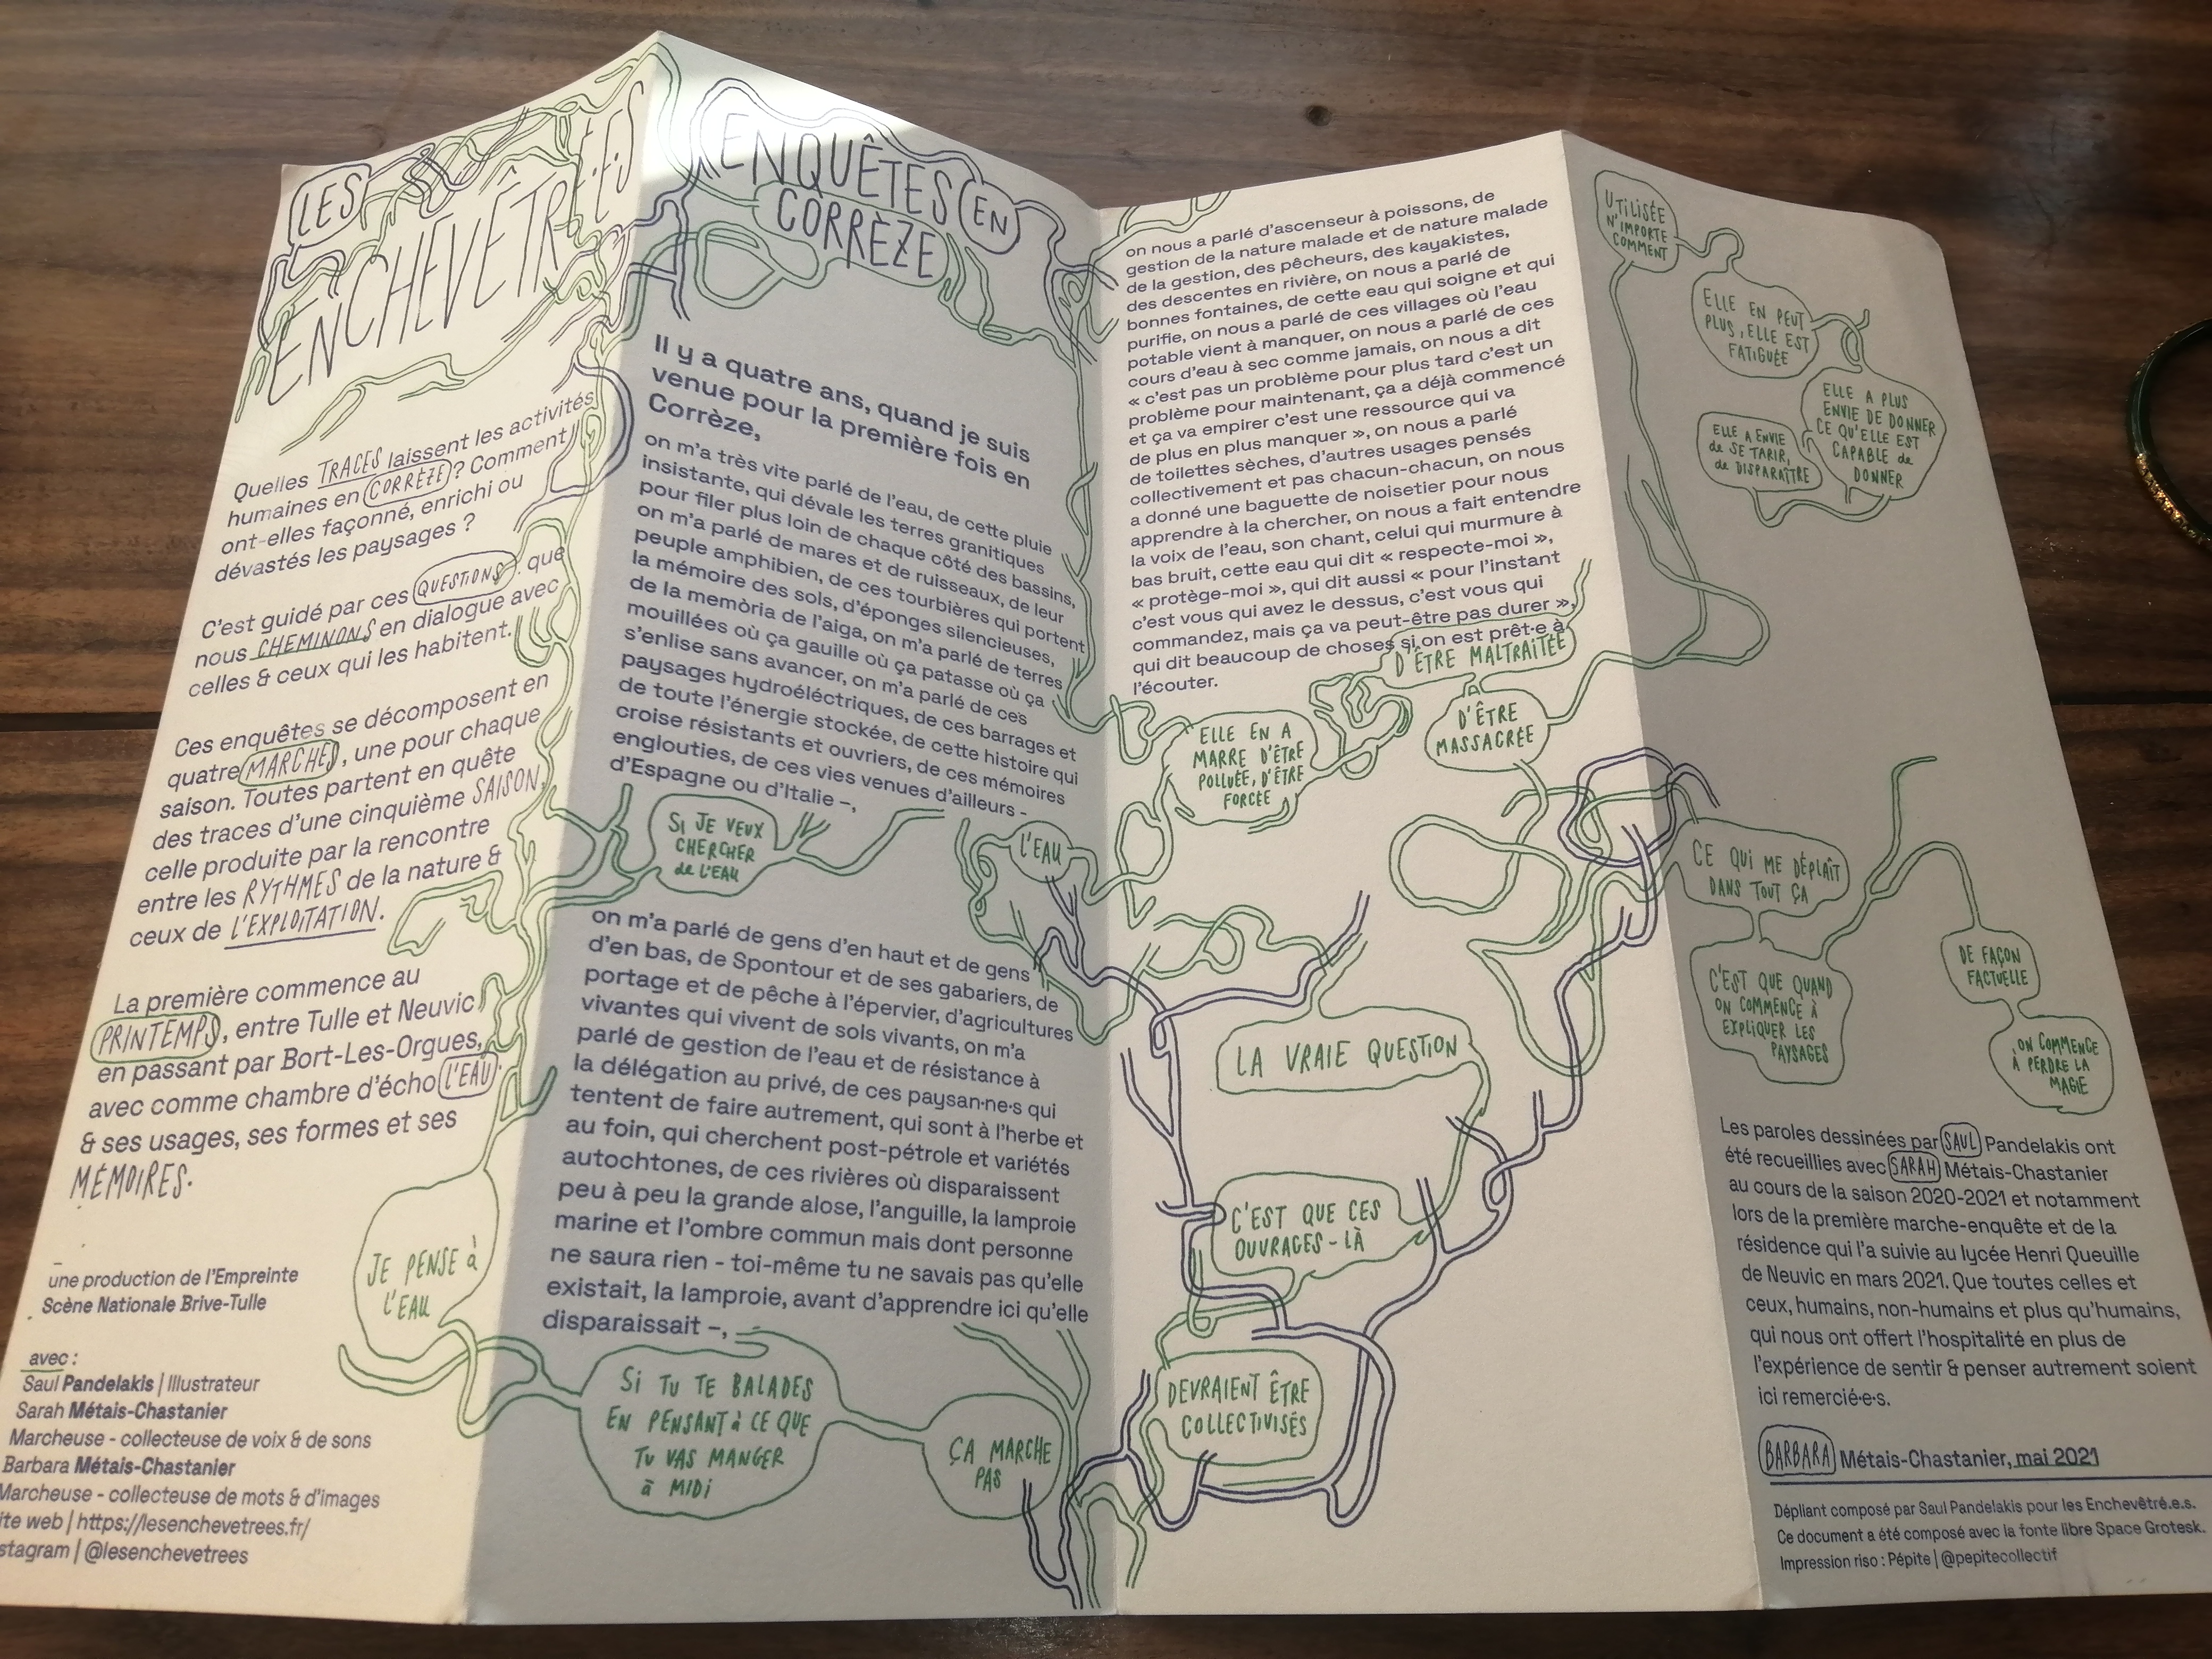 LES
ENCHEVÊTRÉ·E·S
Quelles TRACES laissent les activités
humaines en CORRÈZE ? Comment
ont-elles façonné, enrichi ou
dévastés les paysages ?
C'est guidé par ces QUESTIONS que
nous CHEMINONS en dialogue avec
celles & ceux qui les habitent.
Ces enquêtes se décomposent en
quatre MARCHES, une pour chaque
saison. Toutes partent en quête
des traces d'une cinquième SAISON,
celle produite par la rencontre
entre les RYTHMES de la nature &
ceux de L'EXPLOITATION.
La première commence au
PRINTEMPS, entre Tulle et Neuvic
en passant par Bort-Les-Orgues,
avec comme chambre d'écho L'EAU
& ses usages, ses formes et ses
MÉMOIRES.
une production de l'Empreinte
Scène Nationale Brive-Tulle
avec :
Saul Pandelakis | Illustrateur
Sarah Métais-Chastanier
Marcheuse - collecteuse de voix & de sons
Barbara Métais-Chastanier
Marcheuse - collecteuse de mots & d'images
ite web | https://lesenchevetrees.fr/
stagram | @lesenchevetrees
JE PENSE à
L'EAU
ENQUÊTES EN
CORRÈZE
Il y a quatre ans, quand je suis
venue pour la première fois en
Corrèze,
on m'a très vite parlé de l'eau, de cette pluie
insistante, qui dévale les terres granitiques
pour filer plus loin de chaque côté des bassins,
on m'a parlé de mares et de ruisseaux, de leur
peuple amphibien, de ces tourbières qui portent
la mémoire des sols, d'éponges silencieuses,
de la memòria de l'aiga, on m'a parlé de terres
mouillées où ça gauille où ça patasse où ça
s'enlise sans avancer, on m'a parlé de ces
paysages hydroéléctriques, de ces barrages et
de toute l'énergie stockée, de cette histoire qui
croise résistants et ouvriers, de ces mémoires
englouties, de ces vies venues d'ailleurs -
d'Espagne ou d'Italie –,
SI JE VEUX
CHERCHER
de L'EAU
L'EAU
on m'a parlé de gens d'en haut et de gens
d'en bas, de Spontour et de ses gabariers, de
portage et de pêche à l'épervier, d'agricultures
vivantes qui vivent de sols vivants, on m'a
parlé de gestion de l'eau et de résistance à
la délégation au privé, de ces paysan·ne·s qui
tentent de faire autrement, qui sont à l'herbe et
au foin, qui cherchent post-pétrole et variétés
autochtones, de ces rivières où disparaissent
peu à peu la grande alose, l'anguille, la lamproie
marine et l'ombre commun mais dont personne
ne saura rien - toi-même tu ne savais pas qu'elle
existait, la lamproie, avant d'apprendre ici qu'elle
disparaissait –,
SI TU TE BALADES
EN PENSANT à CE QUE
TU VAS MANGER
à MIDI
ÇA MARCHE
PAS
on nous a parlé d'ascenseur à poissons, de
gestion de la nature malade et de nature malade
de la gestion, des pêcheurs, des kayakistes,
des descentes en rivière, on nous a parlé de
bonnes fontaines, de cette eau qui soigne et qui
purifie, on nous a parlé de ces villages où l'eau
potable vient à manquer, on nous a parlé de ces
cours d'eau à sec comme jamais, on nous a dit
« c'est pas un problème pour plus tard c'est un
problème pour maintenant, ça a déjà commencé
et ça va empirer c'est une ressource qui va
de plus en plus manquer », on nous a parlé
de toilettes sèches, d'autres usages pensés
collectivement et pas chacun-chacun, on nous
a donné une baguette de noisetier pour nous
apprendre à la chercher, on nous a fait entendre
la voix de l'eau, son chant, celui qui murmure à
bas bruit, cette eau qui dit « respecte-moi »,
« protège-moi », qui dit aussi « pour l'instant
c'est vous qui avez le dessus, c'est vous qui
commandez, mais ça va peut-être pas durer »,
qui dit beaucoup de choses si on est prêt·e à
l'écouter.
ELLE EN A
MARRE D'ÊTRE
POLLUÉE, D'ÊTRE
FORCÉE
D'ÊTRE MALTRAITÉE
D'ÊTRE
MASSACRÉE
LA VRAIE QUESTION
C'EST QUE CES
OUVRAGES-LÀ
DEVRAIENT ÊTRE
COLLECTIVISÉS
UTILISÉE
N'IMPORTE
COMMENT
ELLE EN PEUT
PLUS, ELLE EST
FATIGUÉE
ELLE A PLUS
ENVIE DE DONNER
CE QU'ELLE EST
CAPABLE de
DONNER
ELLE A ENVIE
de SE TARIR,
de DISPARAÎTRE
CE QUI ME DÉPLAÎT
DANS TOUT ÇA
C'EST QUE QUAND
ON COMMENCE À
EXPLIQUER LES
PAYSAGES
DE FAÇON
FACTUELLE
ON COMMENCE
À PERDRE LA
MAGIE
Les paroles dessinées par SAUL Pandelakis ont
été recueillies avec SARAH Métais-Chastanier
au cours de la saison 2020-2021 et notamment
lors de la première marche-enquête et de la
résidence qui l'a suivie au lycée Henri Queuille
de Neuvic en mars 2021. Que toutes celles et
ceux, humains, non-humains et plus qu'humains,
qui nous ont offert l'hospitalité en plus de
l'expérience de sentir & penser autrement soient
ici remercié·e·s.
BARBARA Métais-Chastanier, mai 2021
Dépliant composé par Saul Pandelakis pour les Enchevêtré.e.s.
Ce document a été composé avec la fonte libre Space Grotesk.
Impression riso : Pépite | @pepitecollectif